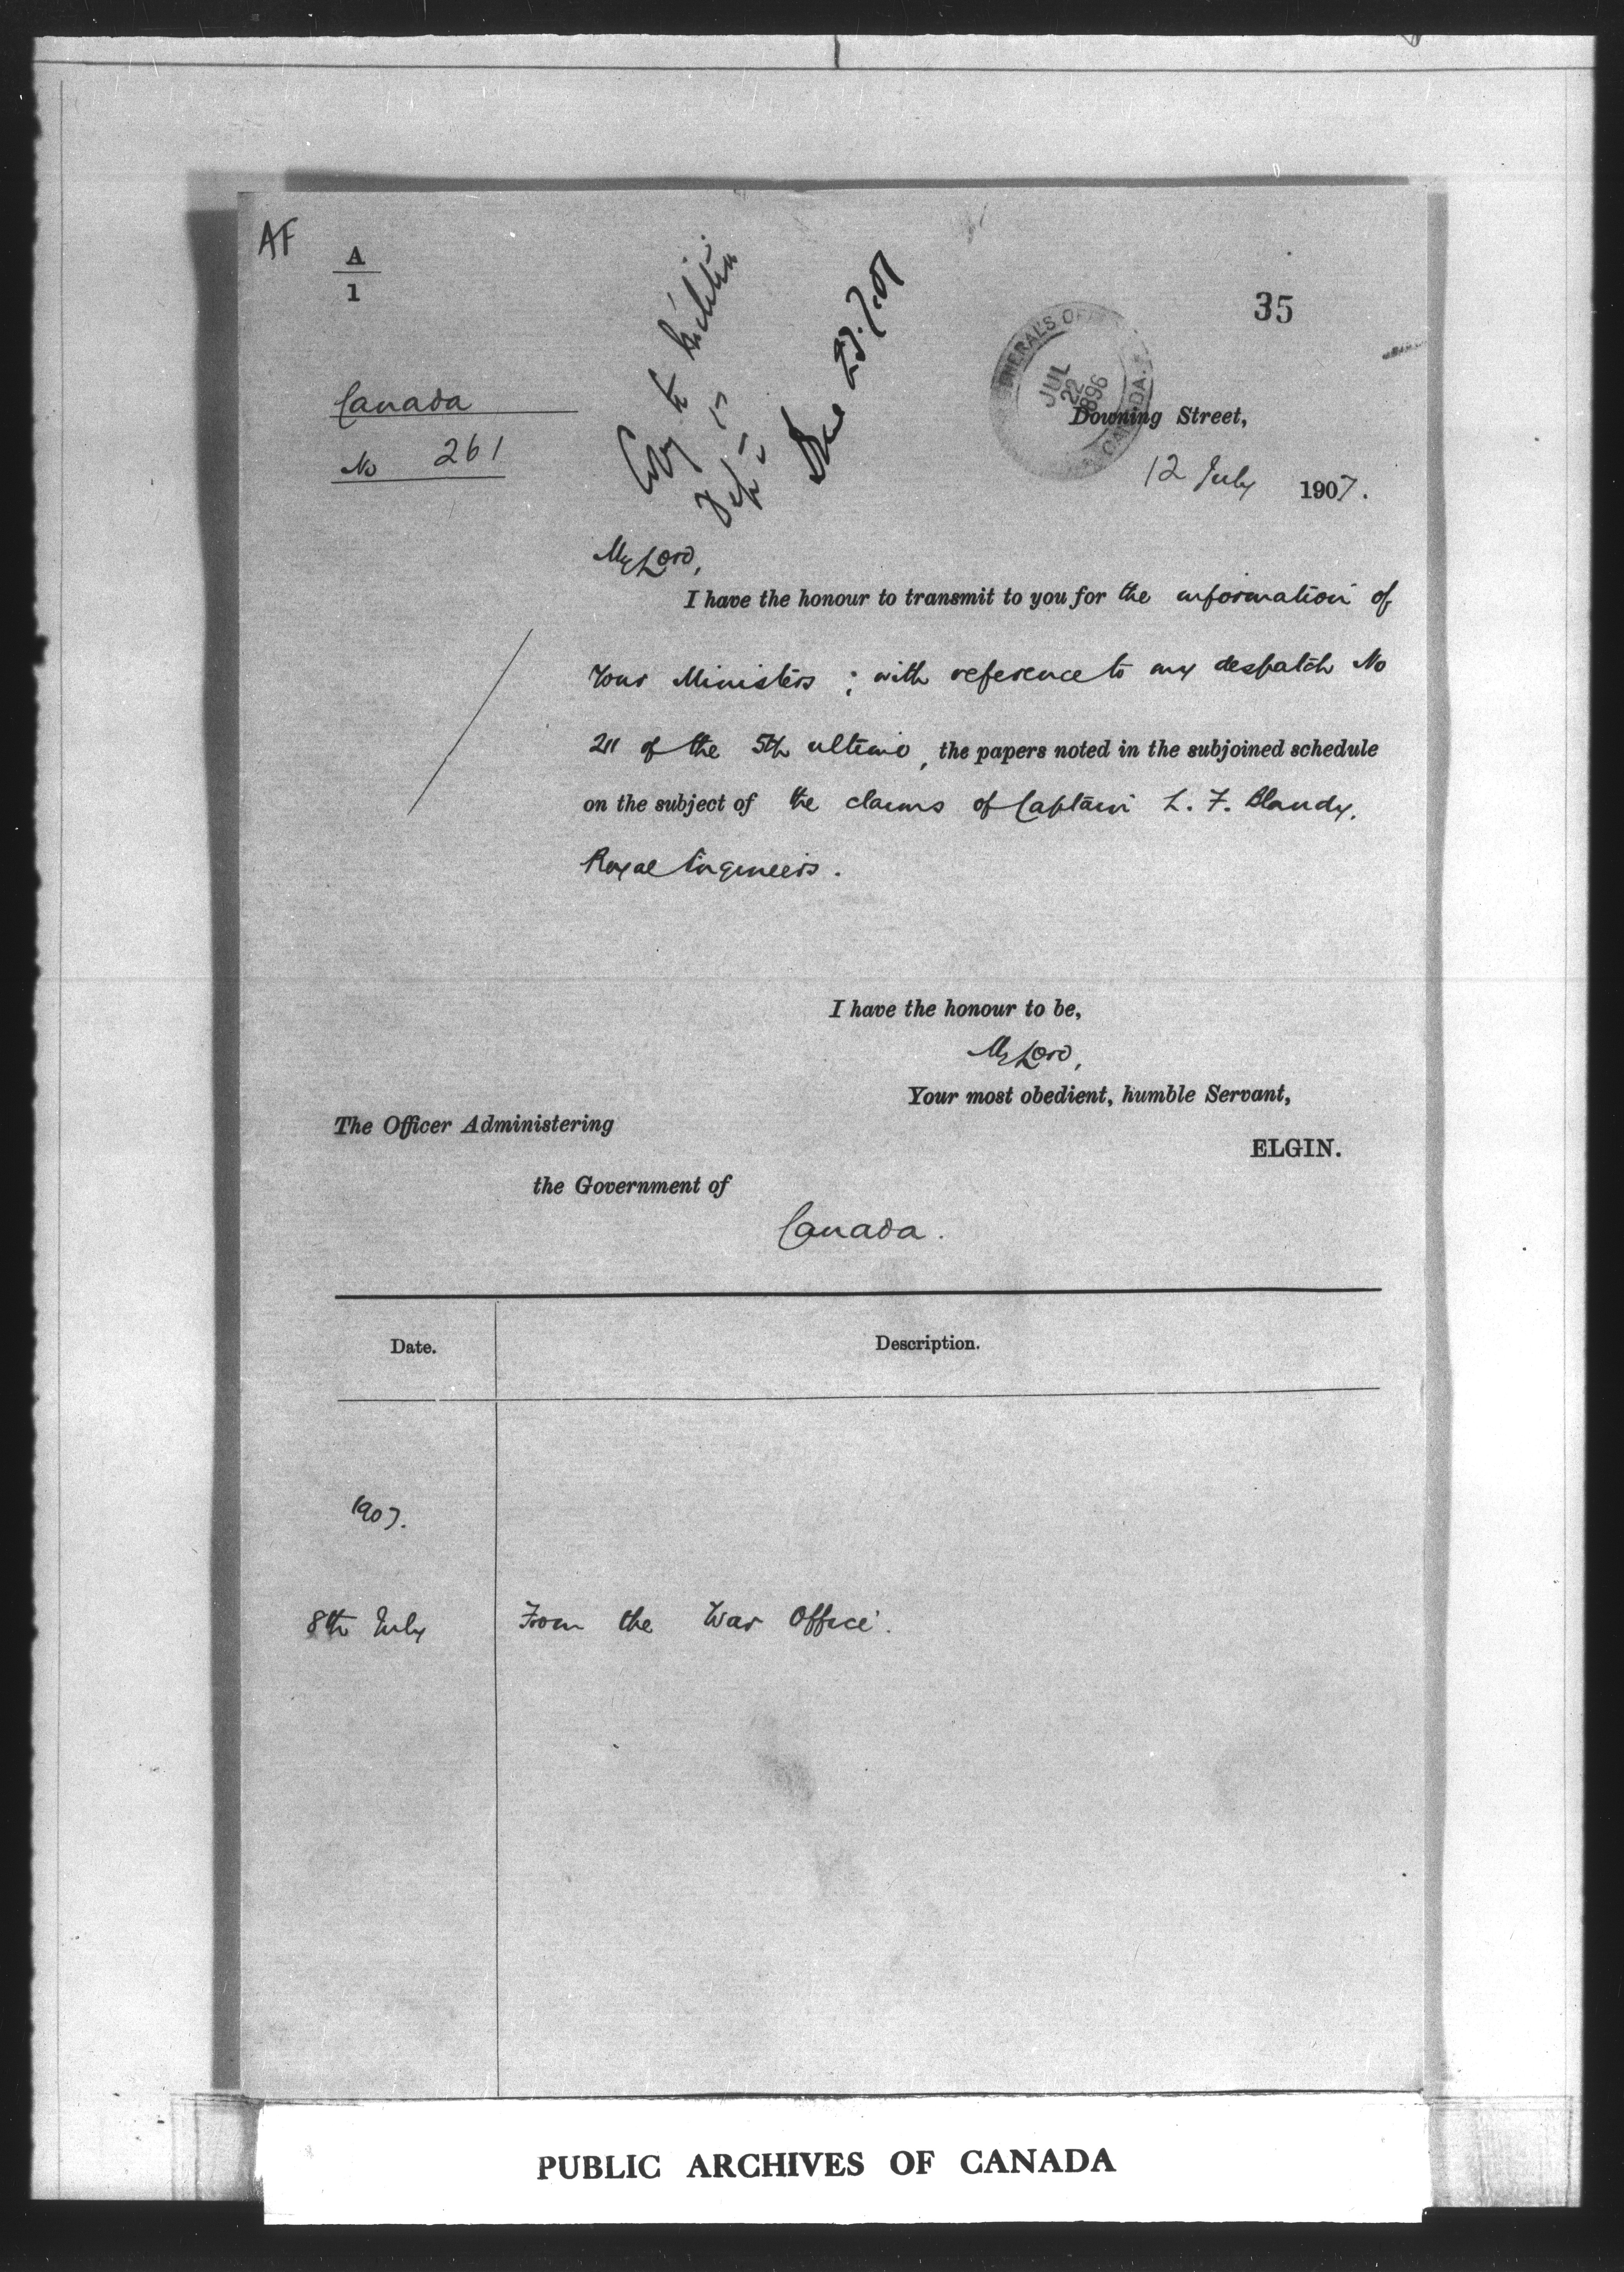 AF
A
1
35
Canada
No 261
Copy to Militia
Dept
23.7.07
GENERAL'S OF
JUL
22
1896
CANADA.
Downing Street,
12 July 1907.
My Lord,
I have the honour to transmit to you for the information of
Your Ministers ; with reference to my despatch No
211 of the 5th ultimo, the papers noted in the subjoined schedule
on the subject of the claims of Captain L. F. Blandy,
Royal Engineers.
I have the honour to be,
My Lord,
Your most obedient, humble Servant,
ELGIN.
The Officer Administering
the Government of
Canada.
Date. Description.
1907.
8th July From the War Office.
PUBLIC ARCHIVES OF CANADA